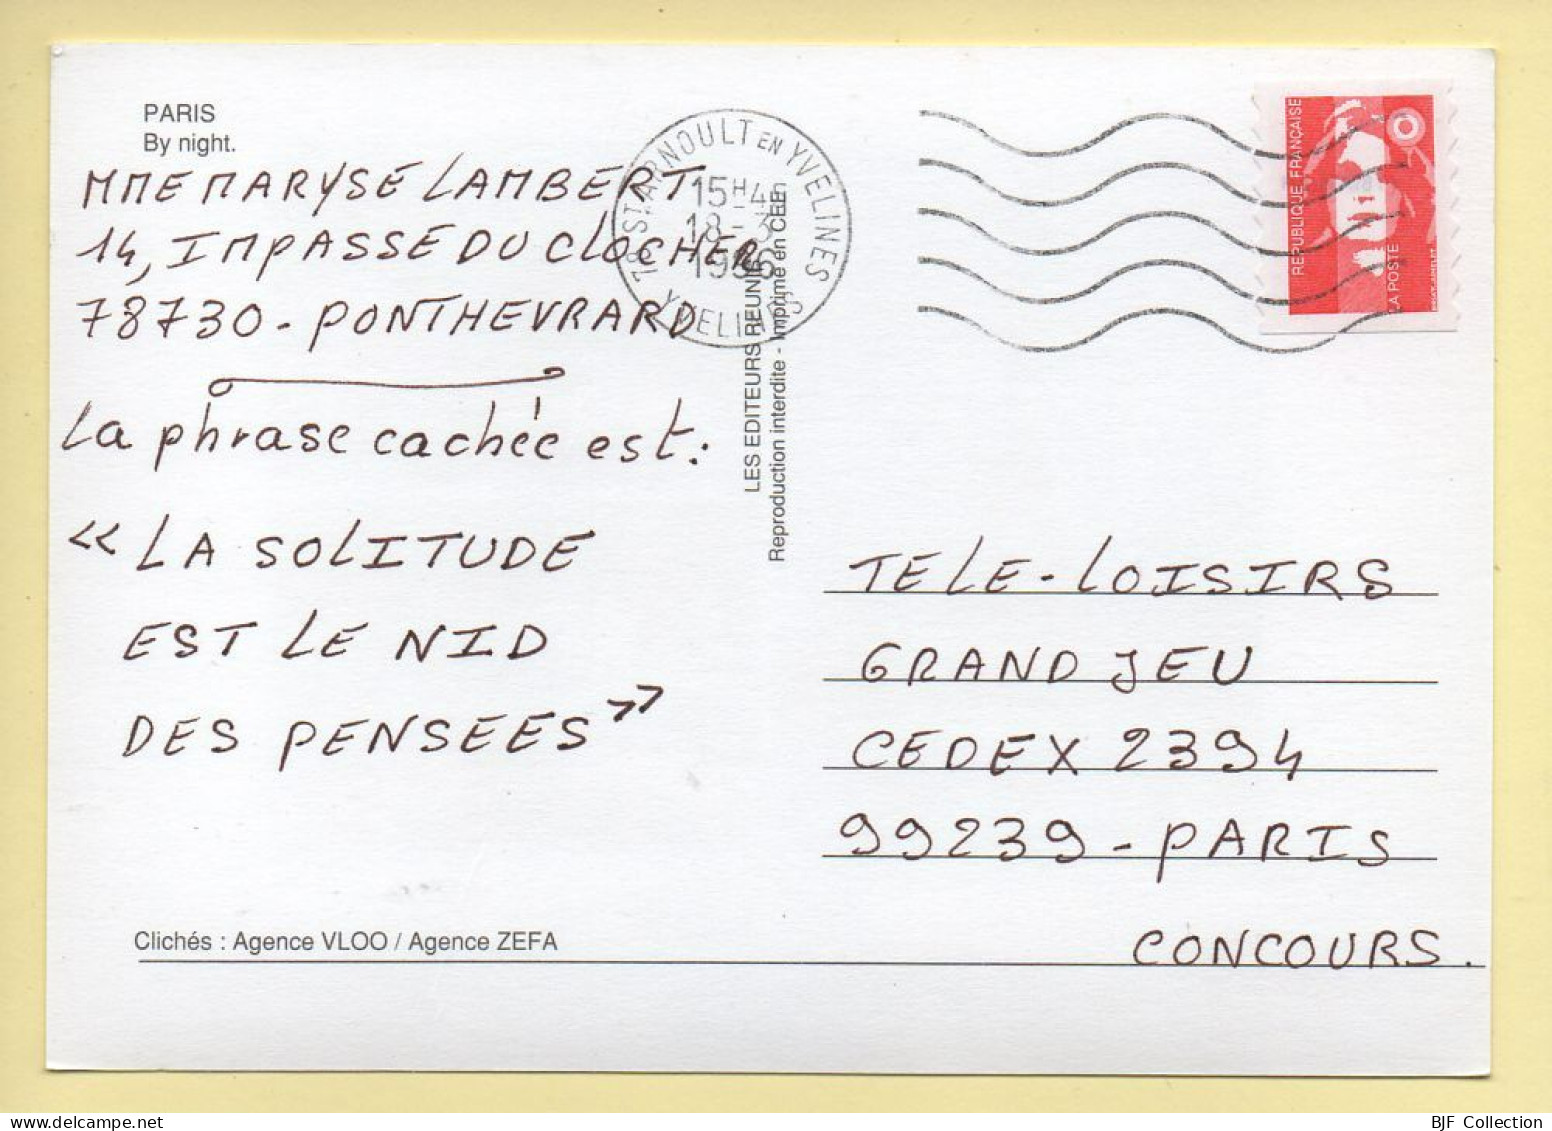 PARIS
By night.
MME MARYSE LAMBERT
14, IMPASSE DU CLOCHER
78730 - PONTHEVRARD
La phrase cachée est :
« LA SOLITUDE
EST LE NID
DES PENSEES »
Clichés : Agence VLOO / Agence ZEFA
78 ST ARNOULT EN YVELINES
15H45
18-3
1996
YVELINES
LES EDITEURS REUNIS
Reproduction interdite - Imprimé en CEE
REPUBLIQUE FRANÇAISE
LA POSTE
TELE-LOISIRS
GRAND JEU
CEDEX 2394
99239 - PARIS
CONCOURS.
BJF Collection